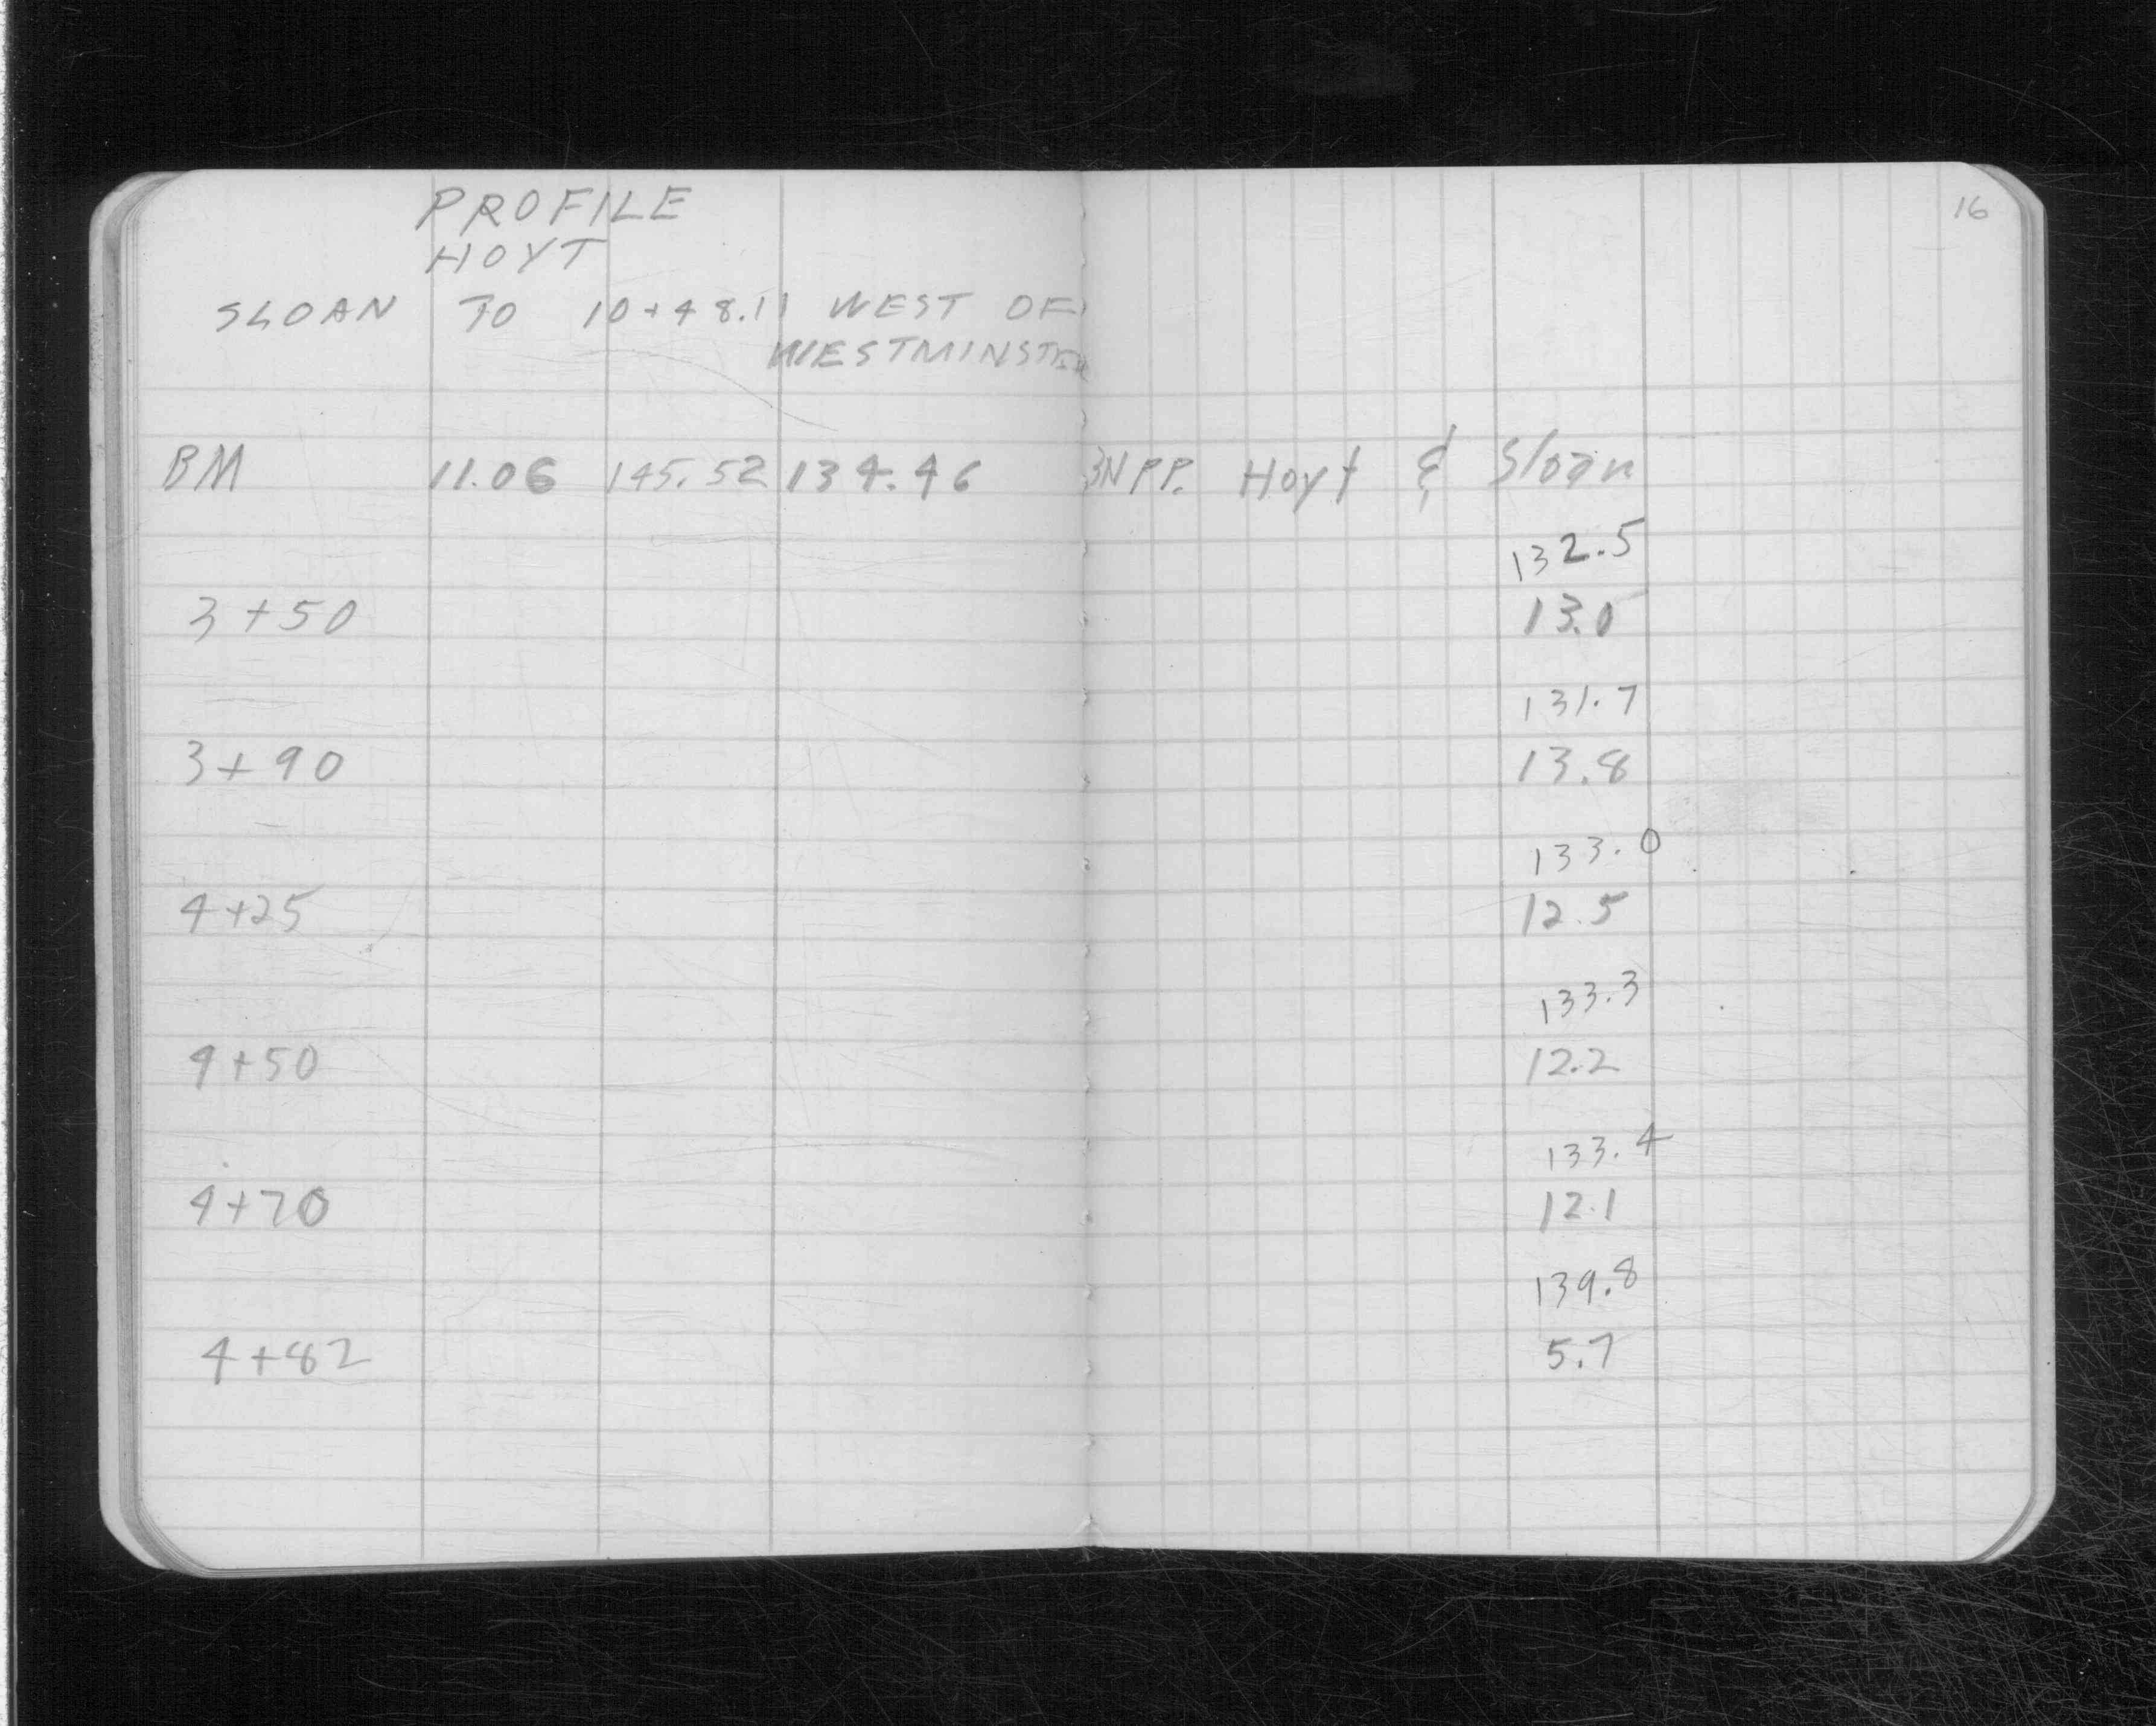 16
PROFILE
HOYT
SLOAN TO 10+48.11 WEST OF
WESTMINSTER
BM 11.06 145.52 134.46 3N PP. Hoyt & Sloan
132.5
3+50 13.0
131.7
3+90 13.8
133.0
4+25 12.5
133.3
4+50 12.2
133.4
4+70 12.1
139.8
4+82 5.7